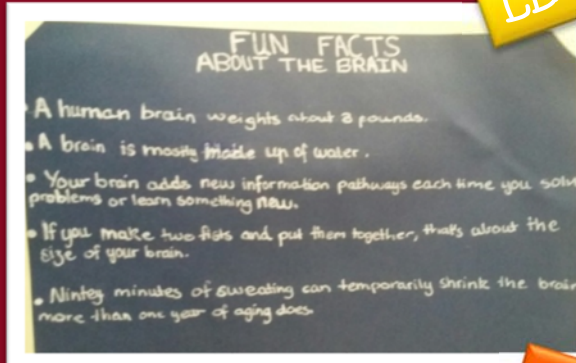 FUN FACTS
ABOUT THE BRAIN
• A human brain weights about 3 pounds.
• A brain is mostly made up of water.
• Your brain adds new information pathways each time you solve
problems or learn something new.
• If you make two fists and put them together, thats about the
size of your brain.
• Nintey minutes of sweating can temporarily shrink the brain
more than one year of aging does.